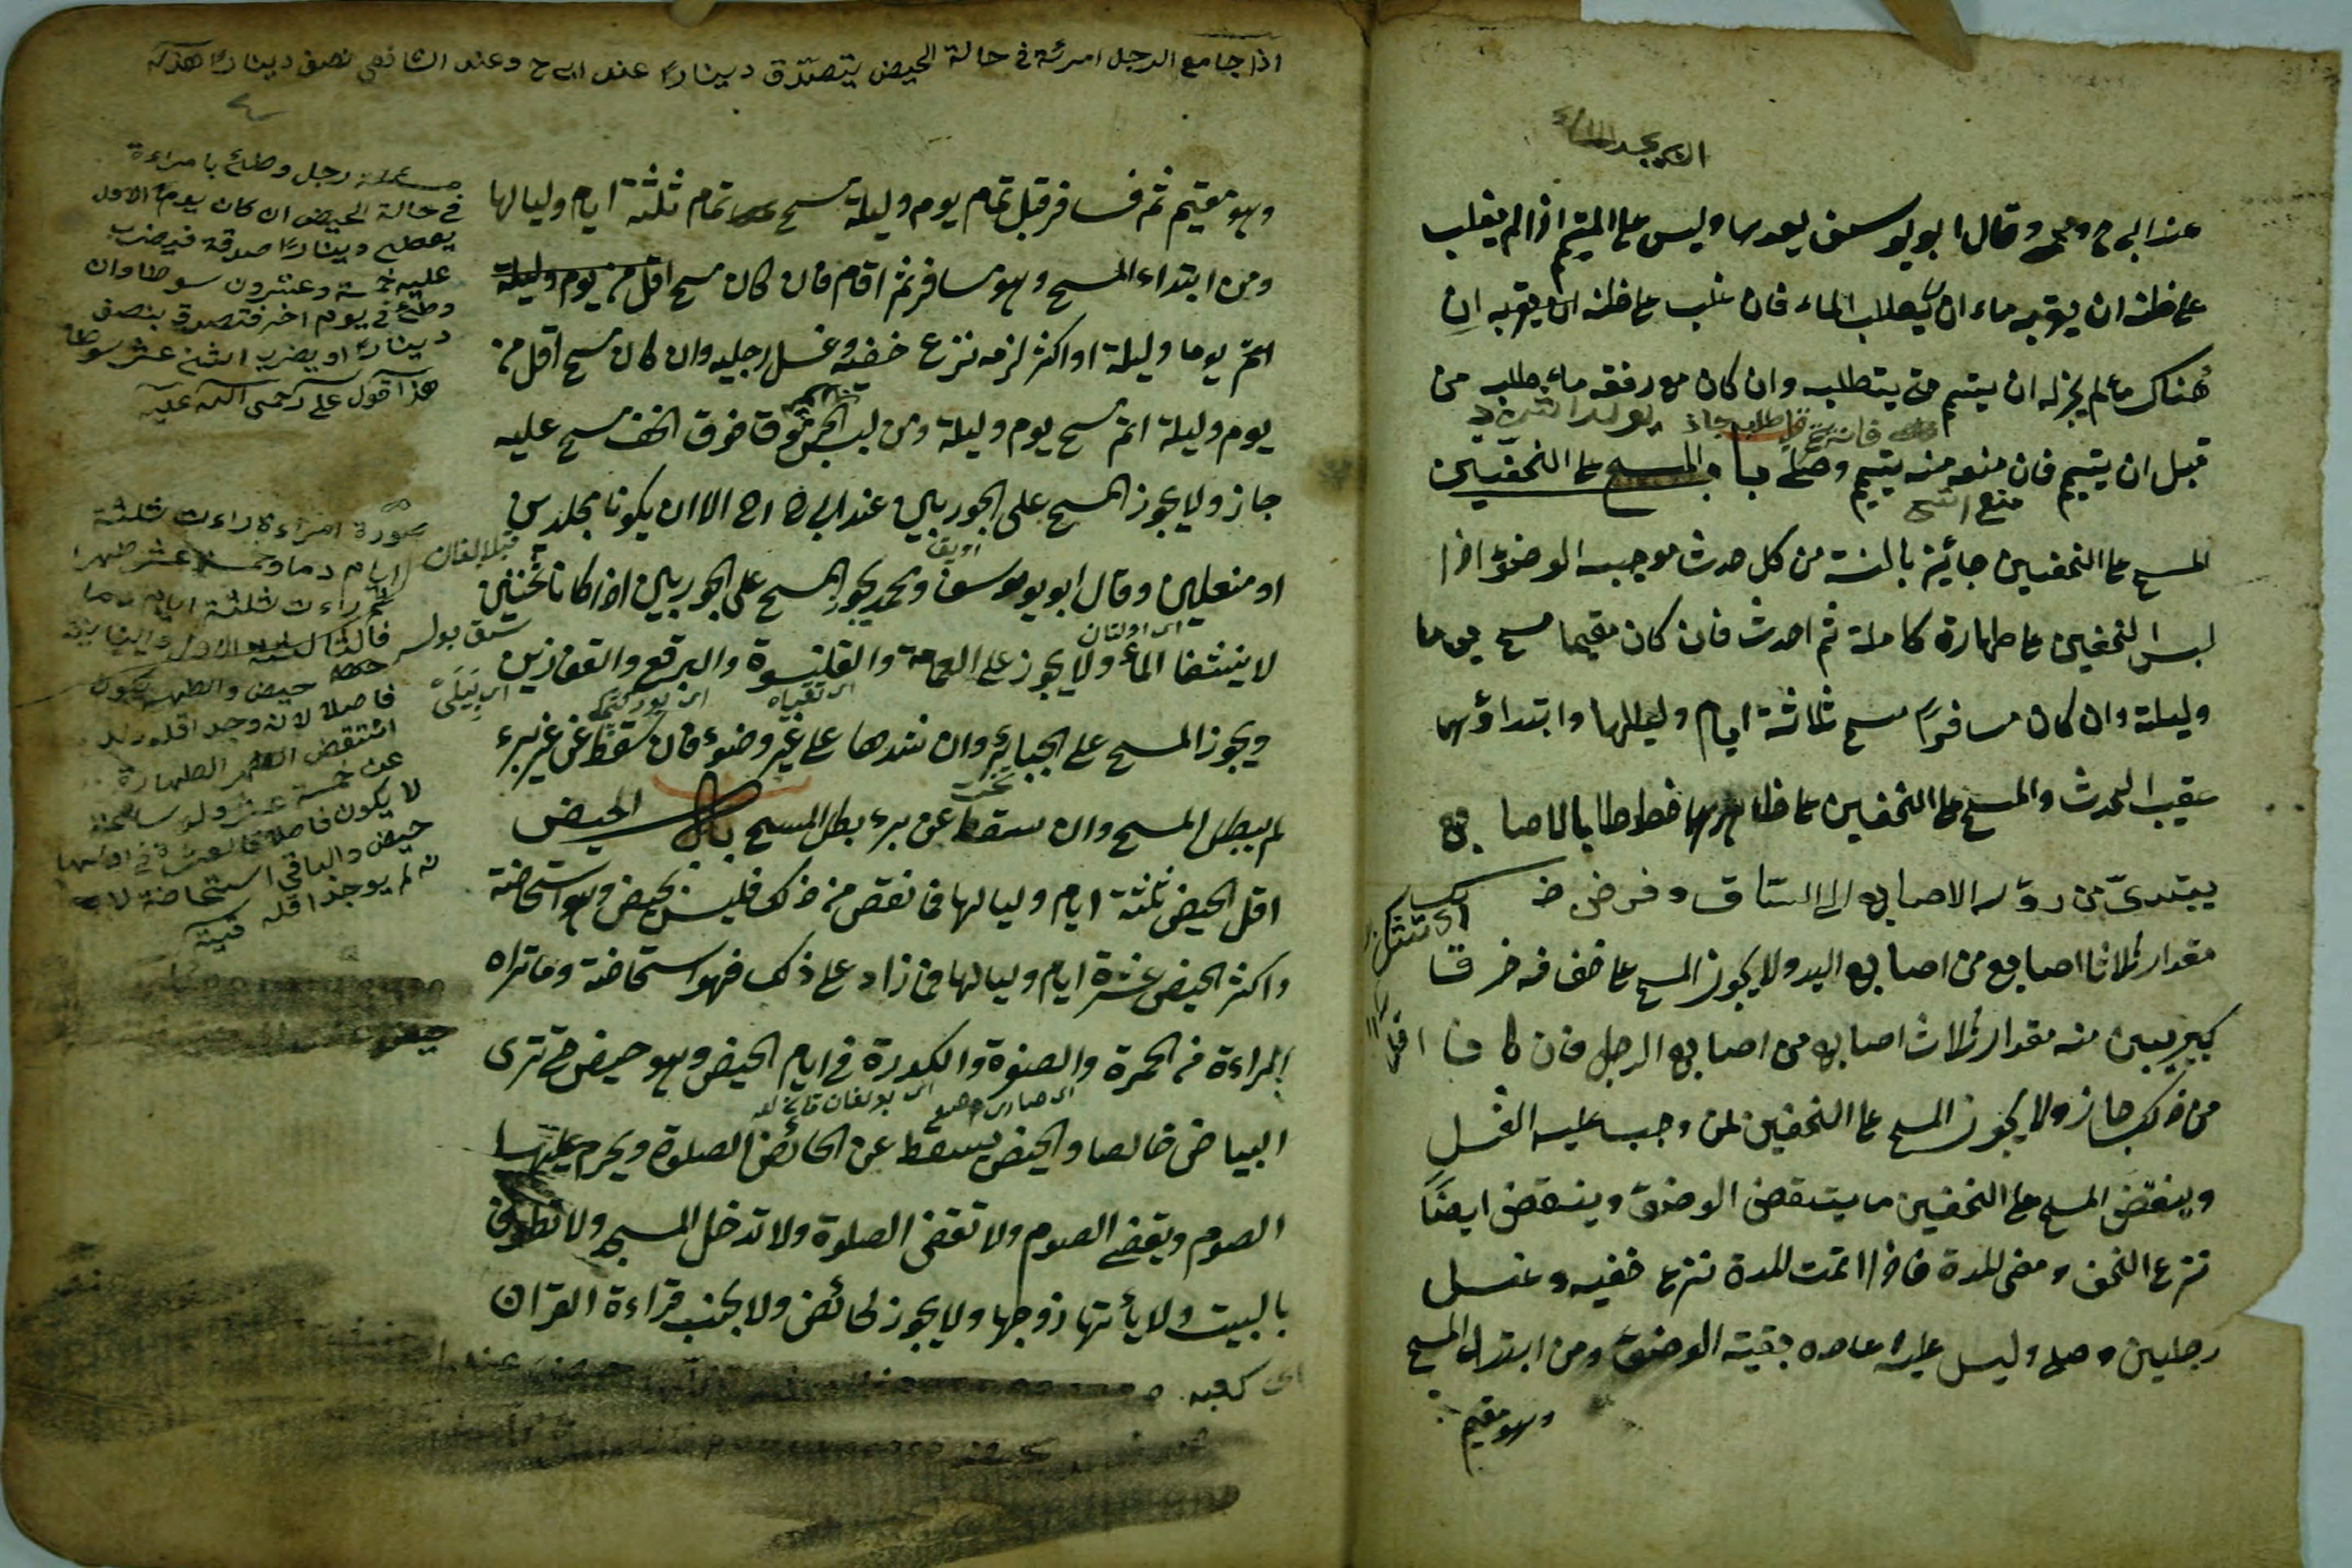 عند ابى ح ومحمد وقال ابو يوسف يعدها وليس على المتيمم اذا لم يغلب
على ظنه ان يقربه ماء ان يطلب الماء فان غلب على ظنه ان يقربه ان
هناك ماء لم يجز له ان يتيمم حتى يتطلبه وان كان مع رفقه ماء طلبه من
قبل ان يتيمم فان منعه منه يتيمم وصلى باب المسح على الخفين
المسح على الخفين جائيز بالسنة من كل حدث موجب الوضوء اذا
لبس الخفين على طهارة كاملة ثم احدث فان كان مقيما مسح يوما
وليلة وان كان مسافرا مسح ثلاثة ايام ولياليها وابتداؤها
عقيب الحدث والمسح على الخفين على ظاهرهما خطوطا بالاصابع
يبتدئ من رؤس الاصابع الى الساق وفرض ذ
مقدار ثلاثا اصابع من اصابع اليد ولا يجوز المسح على خف فيه خرق
كبير يبين منه مقدار ثلاث اصابع من اصابع الرجل فان كا ن اقل
من ذلك جاز ولا يجوز المسح على الخفين لمن وجب عليه الغسل
وينقض المسح على الخفين ما ينتقض الوضوء وينقض ايضا
نزع الخف ومضى المدة فاذا تمت المدة نزع خفيه وغسل
رجلين وصلى وليس عليه اعاده بقية الوضوء ومن ابتداء المسح
وهو مقيم
اذا جامع الرجل امرئة فى حالة الحيض يتصدق دينارا عند ابى ح وعند الشافعى نصف دينارا
وهو مقيم ثم فسافر قبل تمام يوم وليلة مسح تمام ثلثة ايام ولياليها
ومن ابتداء المسح وهو مسافر ثم اقام فان كان مسح اقل من يوم وليلة
اتم يوما وليلة او اكثر لزمه نزع خفه وغسل رجليه وان كان مسح اقل من
يوم وليلة اتم مسح يوم وليلة ومن لبس الجرموق فوق الخف مسح عليه
جاز ولا يجوز المسح على الجوربين عند ابى ح الا ان يكونا مجلدين
او منعلين وقال ابو يوسف ومحمد يجوز المسح على الجوربين اذا كانا ثخينين
لا ينشفا الماء ولا يجوز على العمامة والقلنسوة والبرقع والقفازين
ويجوز المسح على الجبائر وان شدها على غير وضوء فان سقط عن غير برء
لم يبطل المسح وان سقط عن برء بطل المسح باب الحيض
اقل الحيض ثلثة ايام ولياليها فما نقص من ذلك فليس بحيض وهو استحاضة
واكثر الحيض عشرة ايام ولياليها فما زاد على ذلك فهو استحاضة وما تراه
المراءة من الحمرة والصفوة والكدورة فى ايام الحيض وهو حيض حتى ترى
البياض خالصا والحيض يسقط عن الحائض الصلوة ويحرم عليها
الصوم ويقضى الصوم ولا تقضى الصلوة ولا تدخل المسجد ولا تطوف
بالبيت ولا يأتها زوجها ولا يجوز لحائض ولا لجنب قراءة القران
اى كعبه
رجل وطئ بامراءة
فى حالة الحيض ان كان يوم الاول
يعطى دينارا صدقة فيضرب
عليه خمسة وعشرون سوطا وان
وطئ فى يوم اخر فتصدق بنصف
دينارا او يضرب اثنى عشر سوطا
صورة امراءة راءت ثلثة
ايام دما وخمسة عشر طهرا
ثم راءت ثلثة ايام دما
حيض والطهر يكون
فاصلا لانه وجد اقله
لا يكون فاصلا
حيض والباقى استحاضة
لم يوجد اقله